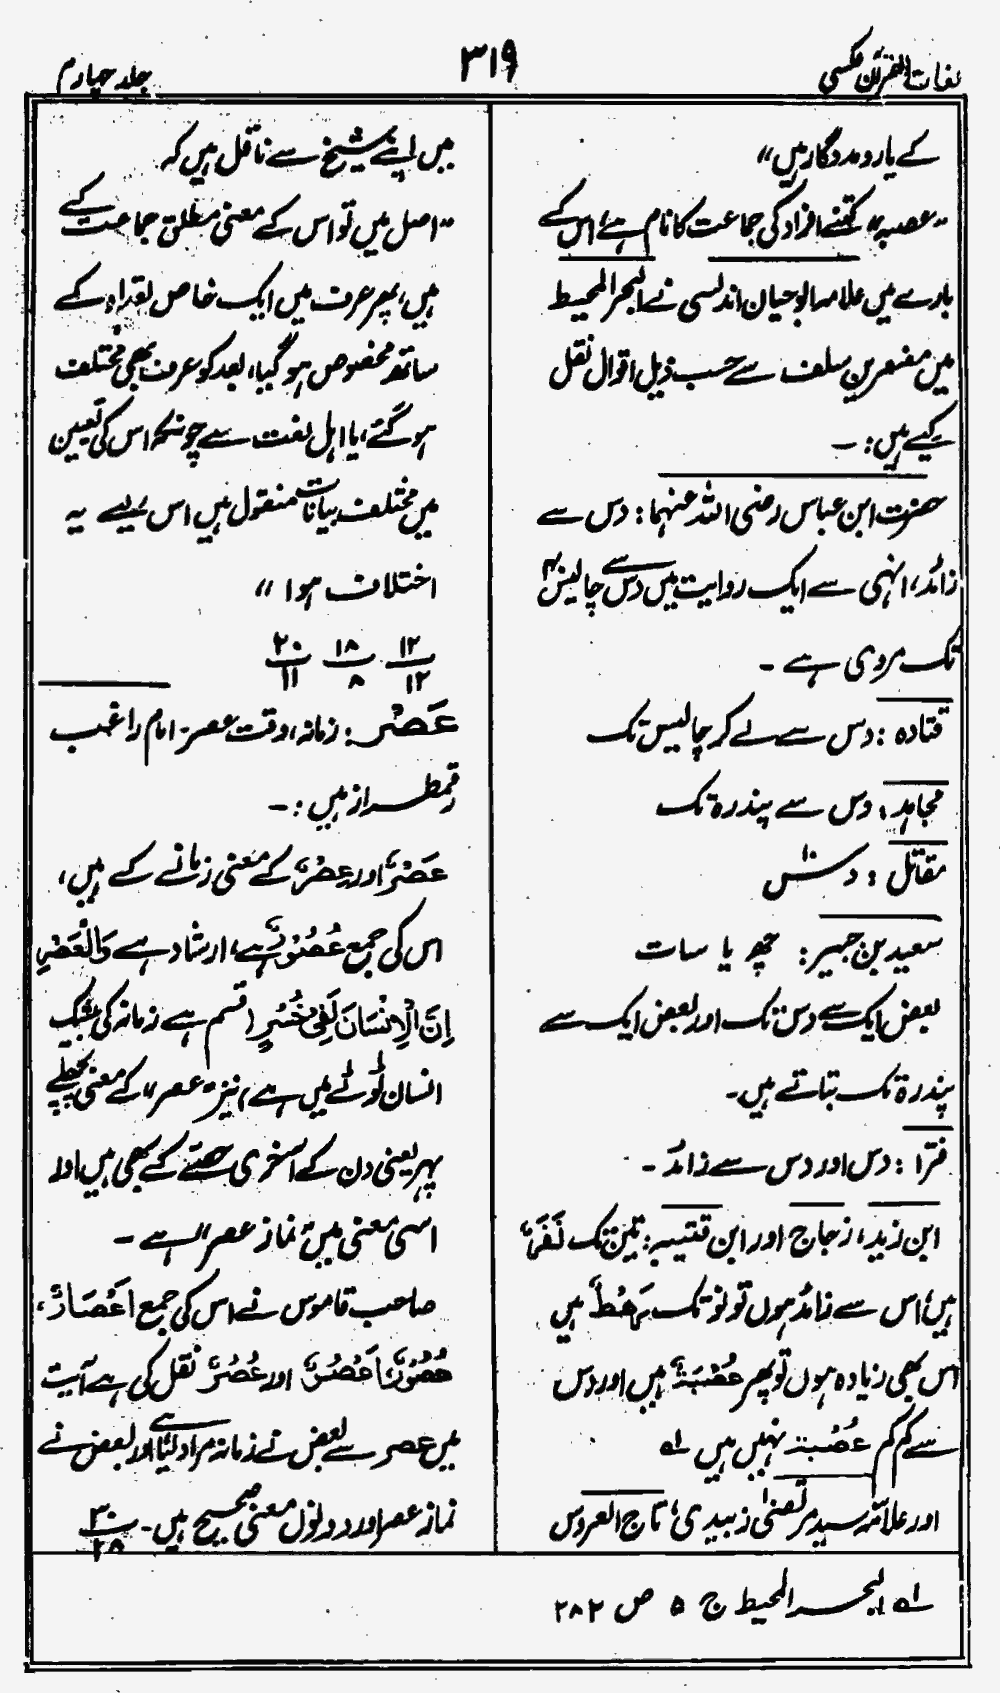 لغات القرآن عکسی
۳۱۹
جلد چہارم
کے یار و مددگار ہیں"
"عصبہ" کتنے افراد کی جماعت کا نام ہے؟ اس کے
بارے میں علامہ ابوحیان اندلسی نے البحر المحیط
میں مفسرین سلف سے حسب ذیل اقوال نقل
کیے ہیں: ۔
حضرت ابن عباس رضی اللہ عنہما: دس سے
زائد، انہی سے ایک روایت میں دس سے چالیس
تک مروی ہے ۔
قتادہ: دس سے لے کر چالیس تک
مجاہد: دس سے پندرہ تک
مقاتل: دس ۱۰
سعید بن جبیر: چھ یا سات
بعض ایک سے دس تک اور بعض ایک سے
پندرہ تک بتاتے ہیں۔
فرّا: دس اور دس سے زائد ۔
ابن زید، زجاج اور ابن قتیبہ: تین تک نَفَرٌ
ہیں، اس سے زائد ہوں تو نو تک رَهْطٌ ہیں
اس بھی زیادہ ہوں تو پھر عُصْبَةٌ ہیں اور دس
سے کم کم عُصْبة نہیں ہیں لہ
اور علامہ سید مرتضیٰ زبیدی، تاج العروس
میں اپنے شیخ سے ناقل ہیں کہ
"اصل میں تو اس کے معنی مطلق جماعت کے
ہیں، پھر عرف میں ایک خاص تعداد کے
ساتھ مخصوص ہو گیا، بعد کو عرف بھی مختلف
ہو گئے، یا اہل لغت سے چونکہ اس کی تعیین
میں مختلف بیانات منقول ہیں اس لیے یہ
اختلاف ہوا"
۱۲/۱۲ ۱۸/۸ ۲۰/۱۱
عَصْر: زمانہ، وقت عصر۔ امام راغب
رقمطراز ہیں: ۔
عَصْرٌ اور عِصْرٌ کے معنی زمانے کے ہیں،
اس کی جمع عُصُوْرٌ ہے، ارشاد ہے وَالْعَصْرِ
اِنَّ الْاِنْسَانَ لَفِیْ خُسْرٍ (قسم ہے زمانہ کی بیشک
انسان ٹوٹے میں ہے) نیز "عصر" کے معنی پچھلے
پہر یعنی دن کے آخری حصّے کے بھی ہیں اور
اسی معنی میں "نماز عصر" ہے ۔
صاحب قاموس نے اس کی جمع اَعْصَارٌ،
عُصُوْرٌ، اَعْصُرٌ اور عُصُرٌ نقل کی ہے آیت
میں عصر سے بعض نے زمانہ مراد لیا ہے اور بعض نے
نماز عصر اور دونوں معنی صحیح ہیں۔ ۳۰/۲۸
لہ البحر المحیط ج ۵ ص ۲۸۲